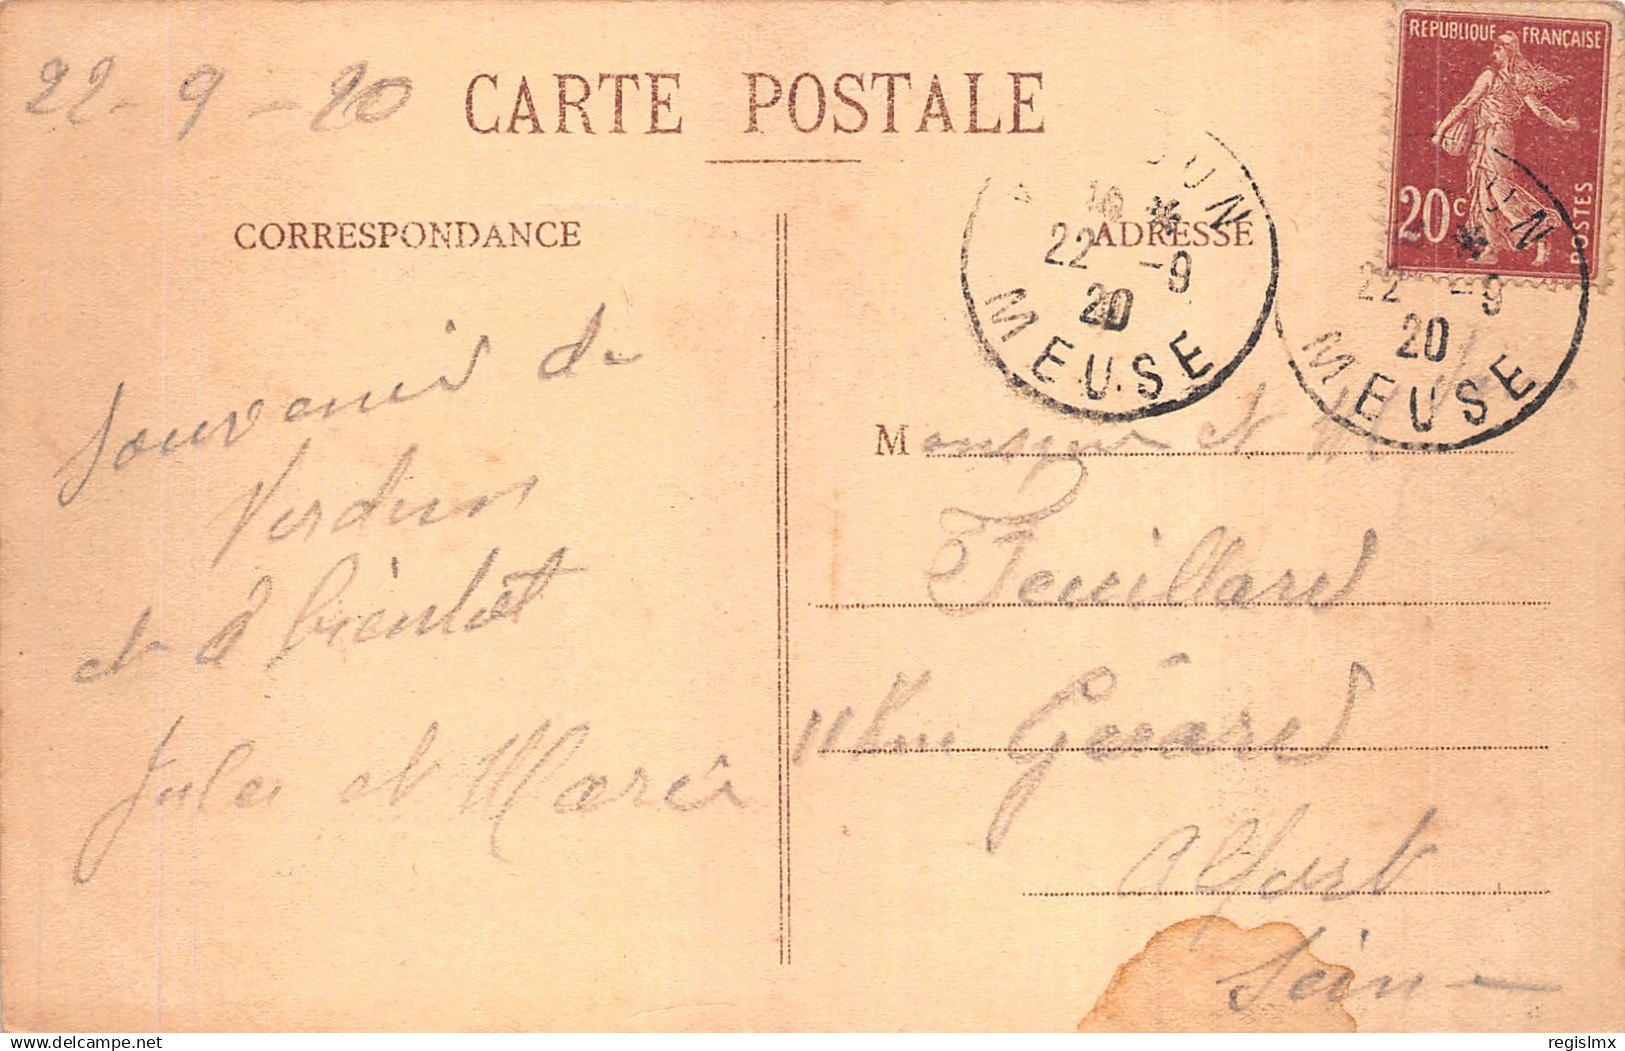 22-9-20
CARTE POSTALE
REPUBLIQUE FRANÇAISE
20c
POSTES
CORRESPONDANCE
ADRESSE
22 -9
20
MEUSE
22 -9
20
MEUSE
Souvenir de
Verdun
et à bientôt
Jules et Marie
Monsieur et M
Feuillard
11 Rue Gérard
Alfort
Seine
regislmx